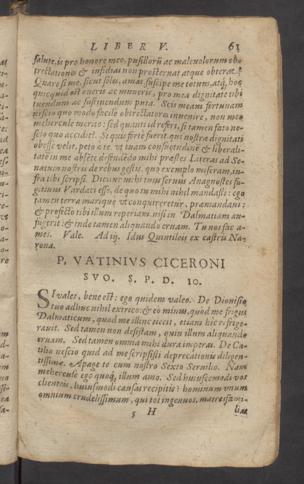 LIBER V. 63
salute, is pro honore meo, pusillorū ac maleuolorum ob-
trectationib. & insidiis non prosternat atque obterat.
Quare si me, sicut soles, amas, suscipe me totum, atq; hoc
quicquid est oneris ac muneris, pro mea dignitate tibi
tuendum ac sustinendum puta. Scis meam fortunam
nescio quo modo facile obtrectatorū inuenire, non meo
mehercule merito: sed quanti id refert, si tamen fato ne-
scio quo accidit? Si quis forte fuerit, qui nostræ dignitati
obesse velit, peto à te, vt tuam consuetudinē & liberali-
tatē in me absēte defendēdo mihi præstes. Literas ad Se-
natum nostrū de rebus gestis, quo exemplo miseram, in-
fra tibi scripsi. Dicunt mihi tuus seruus Anagnostes fu-
gitiuus Vardæis esse, de quo tu mihi nihil mandasti: ego
tamen terra marique vt conquireretur, præmandaui:
& profectò tibi illum reperiam, nisi in Dalmatiam au-
fugerit: & inde tamen aliquando eruam. Tu nos fac a-
mes. Vale. Ad iij. Idus Quintileis ex castris Na-
rona.
P. VATINIVS CICERONI
SVO. S. P. D. 10.
SI vales, bene est: ego quidem valeo. De Dionysio
tuo adhuc nihil extrico: & eò minus, quòd me frigus
Dalmaticum, quod me illinc eiecit, etiam hîc refrige-
rauit. Sed tamen non desistam, quin illum aliquando
eruam. Sed tamen omnia mihi dura imperas. De Ca-
tilio nescio quid ad me scripsisti deprecationis diligen-
tissimæ. Apage te cum nostro Sexto Seruilio. Nam
mehercule ego quoq; illum amo. Sed huiuscemodi vos
clienteis, huiusmodi causas recipitis? hominem vnum
omnium crudelissimum, qui tot ingenuos, matresfami-
5 H lias